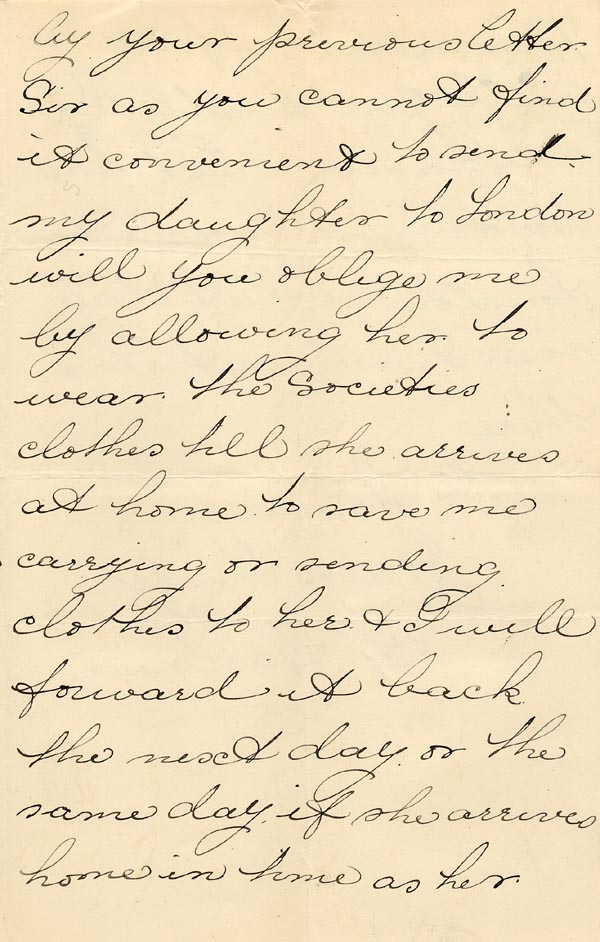 by your previous letter
Sir as you cannot find
it convenient to send
my daughter to London
will you oblige me
by allowing her to
wear the Societies
clothes till she arrives
at home to save me
carrying or sending
clothes to her & I will
forward it back
the next day or the
same day if she arrives
home in time as her